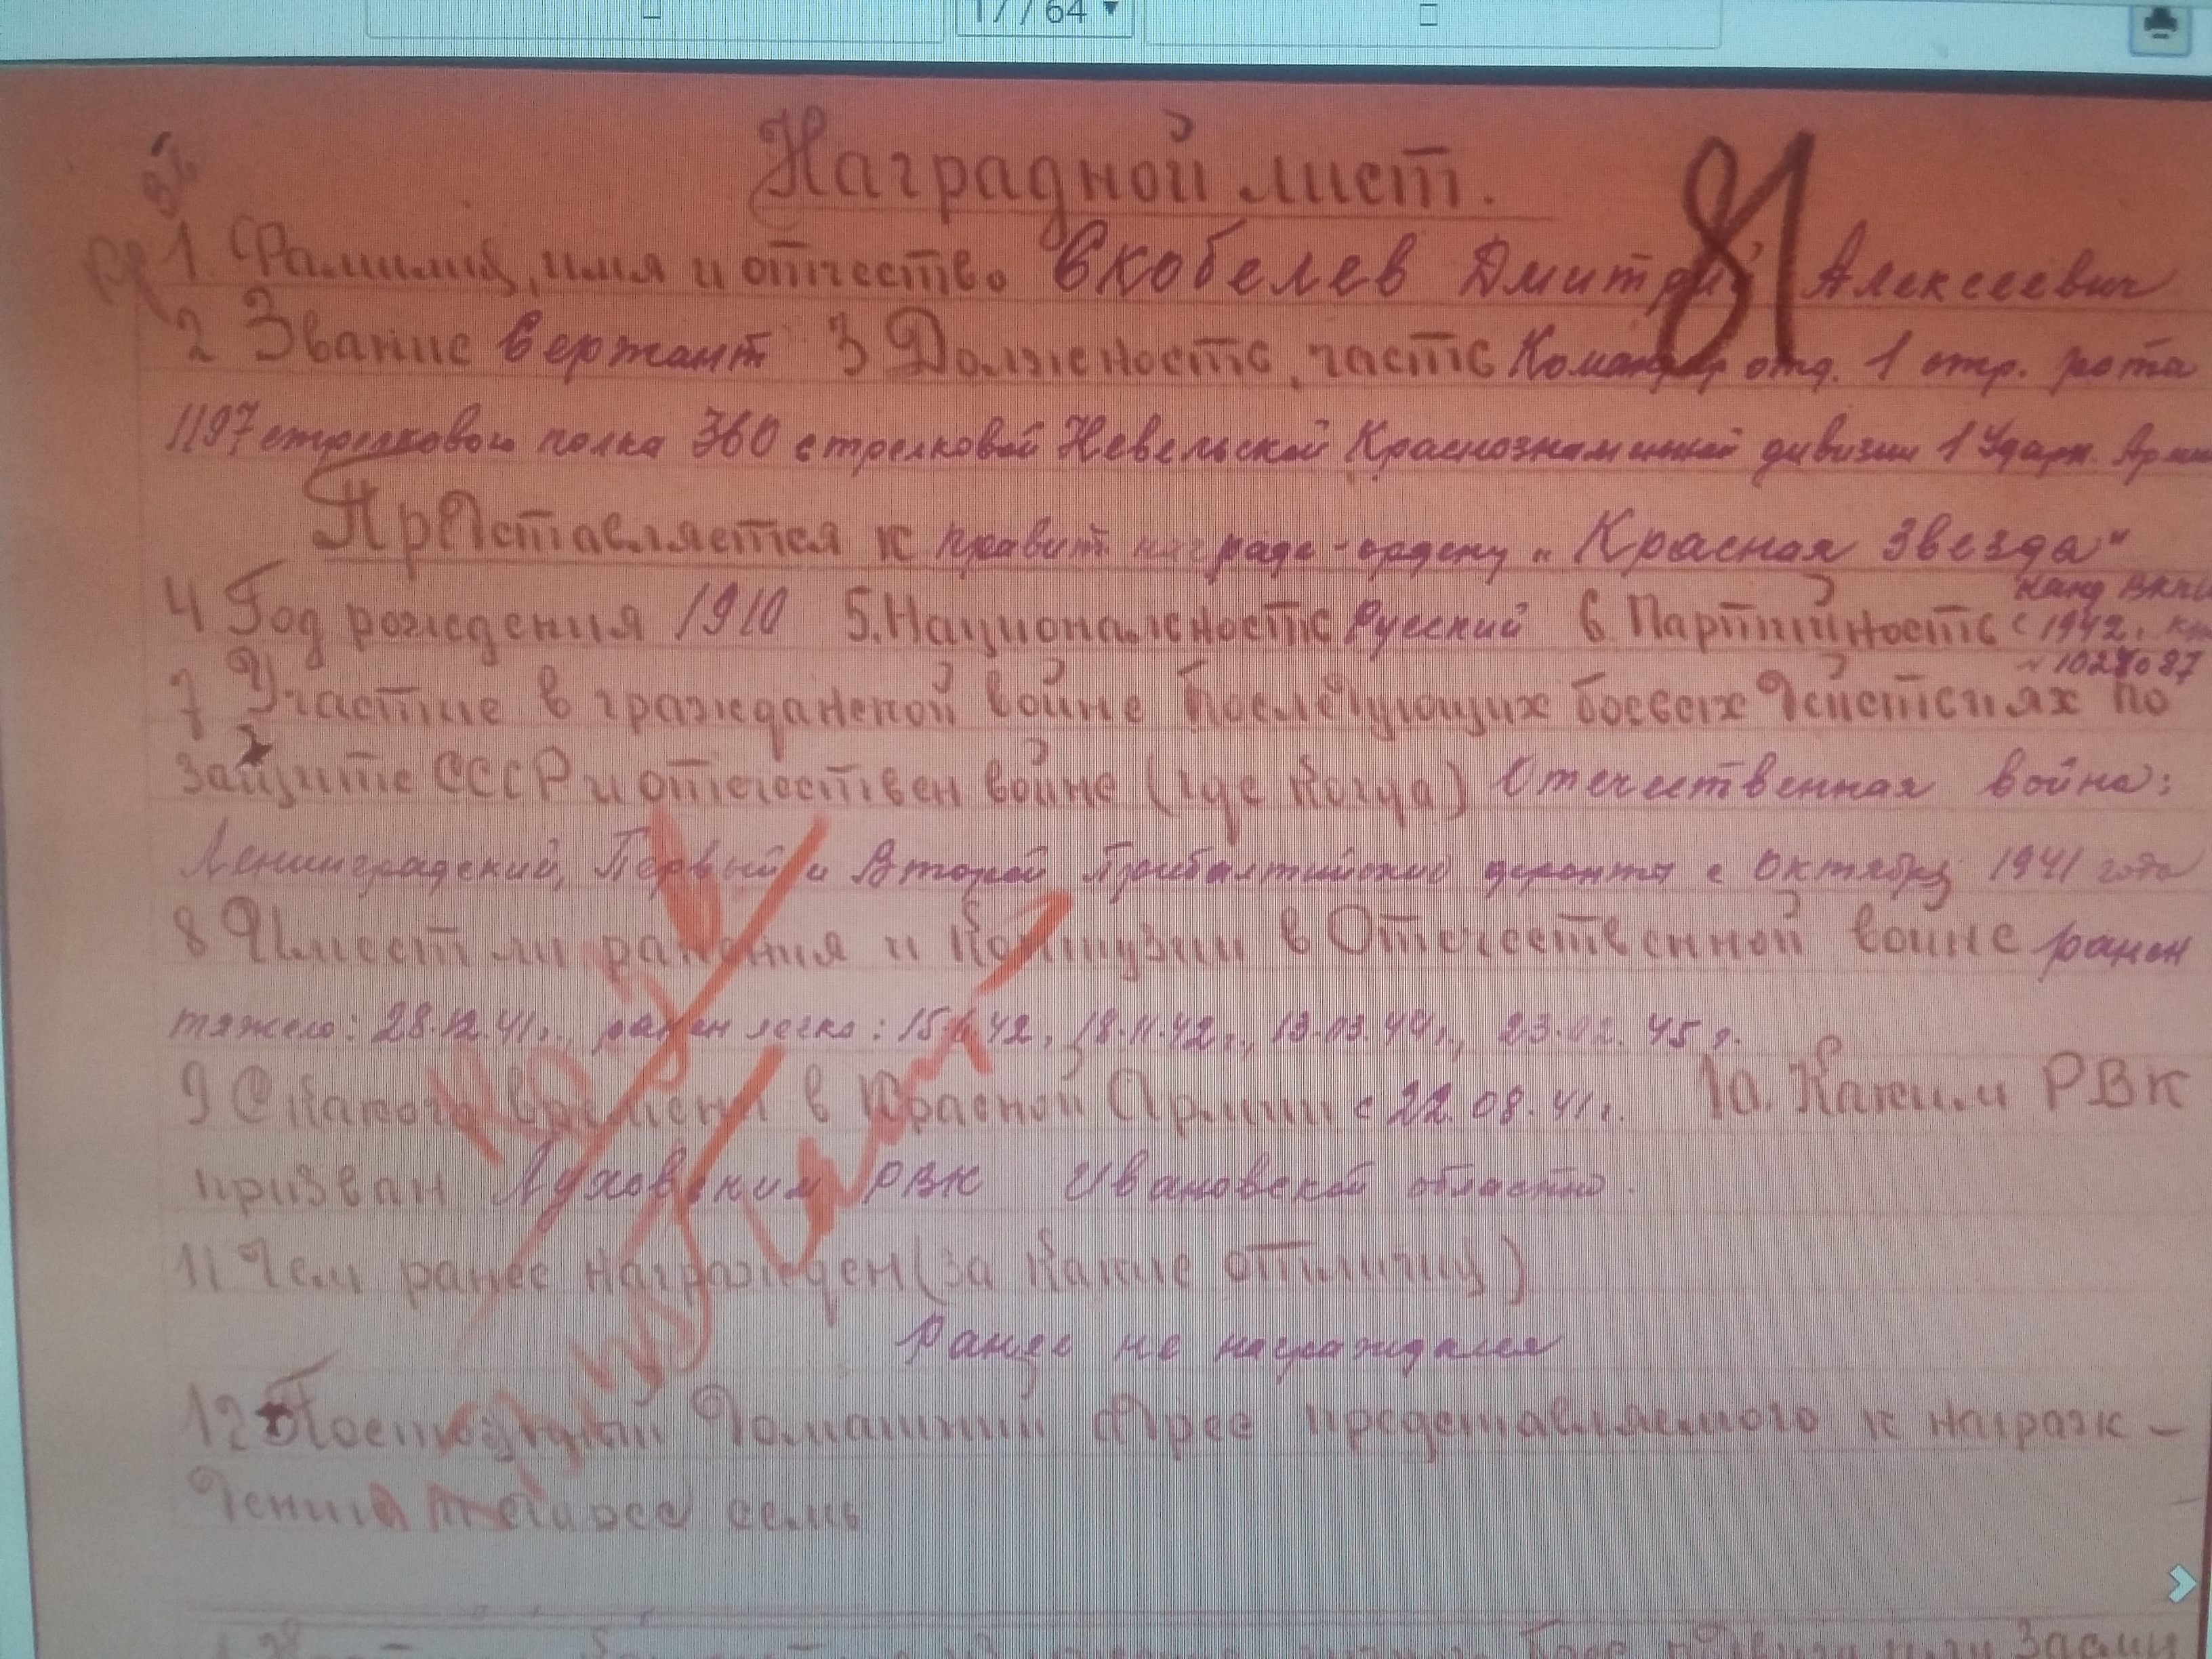 17 / 64
81
Наградной лист.
1. Фамилия, имя и отчество Скобелев Дмитрий Алексеевич
2 Звание Сержант 3 Должность, часть Командир отд. 1 стр. рота
1197 стрелкового полка 360 стрелковой Невельской Краснознаменной дивизии 1 Ударн. Арми
Представляется к правит. награде - ордену „Красная Звезда"
4. Год рождения 1910 5. Национальность Русский 6. Партийность Канд ВКП
с 1942г.
7 Участие в гражданской войне последующих боевых действиях по
защите СССР и отечествен войне (где когда) Отечественная война:
Ленинградский, Первый и Второй Прибалтийский фронты с октября 1941 года
8 Имеет ли ранения и контузии в Отечественной войне ранен
тяжело: 28.12.41г., ранен легко: 42, 18.11.42г., 13.03.44г., 23.02.45г.
9 С какого времени в Красной Армии с 22.08.41г. 10. Каким РВК
призван Лухским РВК Ивановской области.
11 Чем ранее награжден (за какие отличия)
Ранее не награждался
12 Постоянный домашний адрес представляемого к награж-
дению и адрес семьи